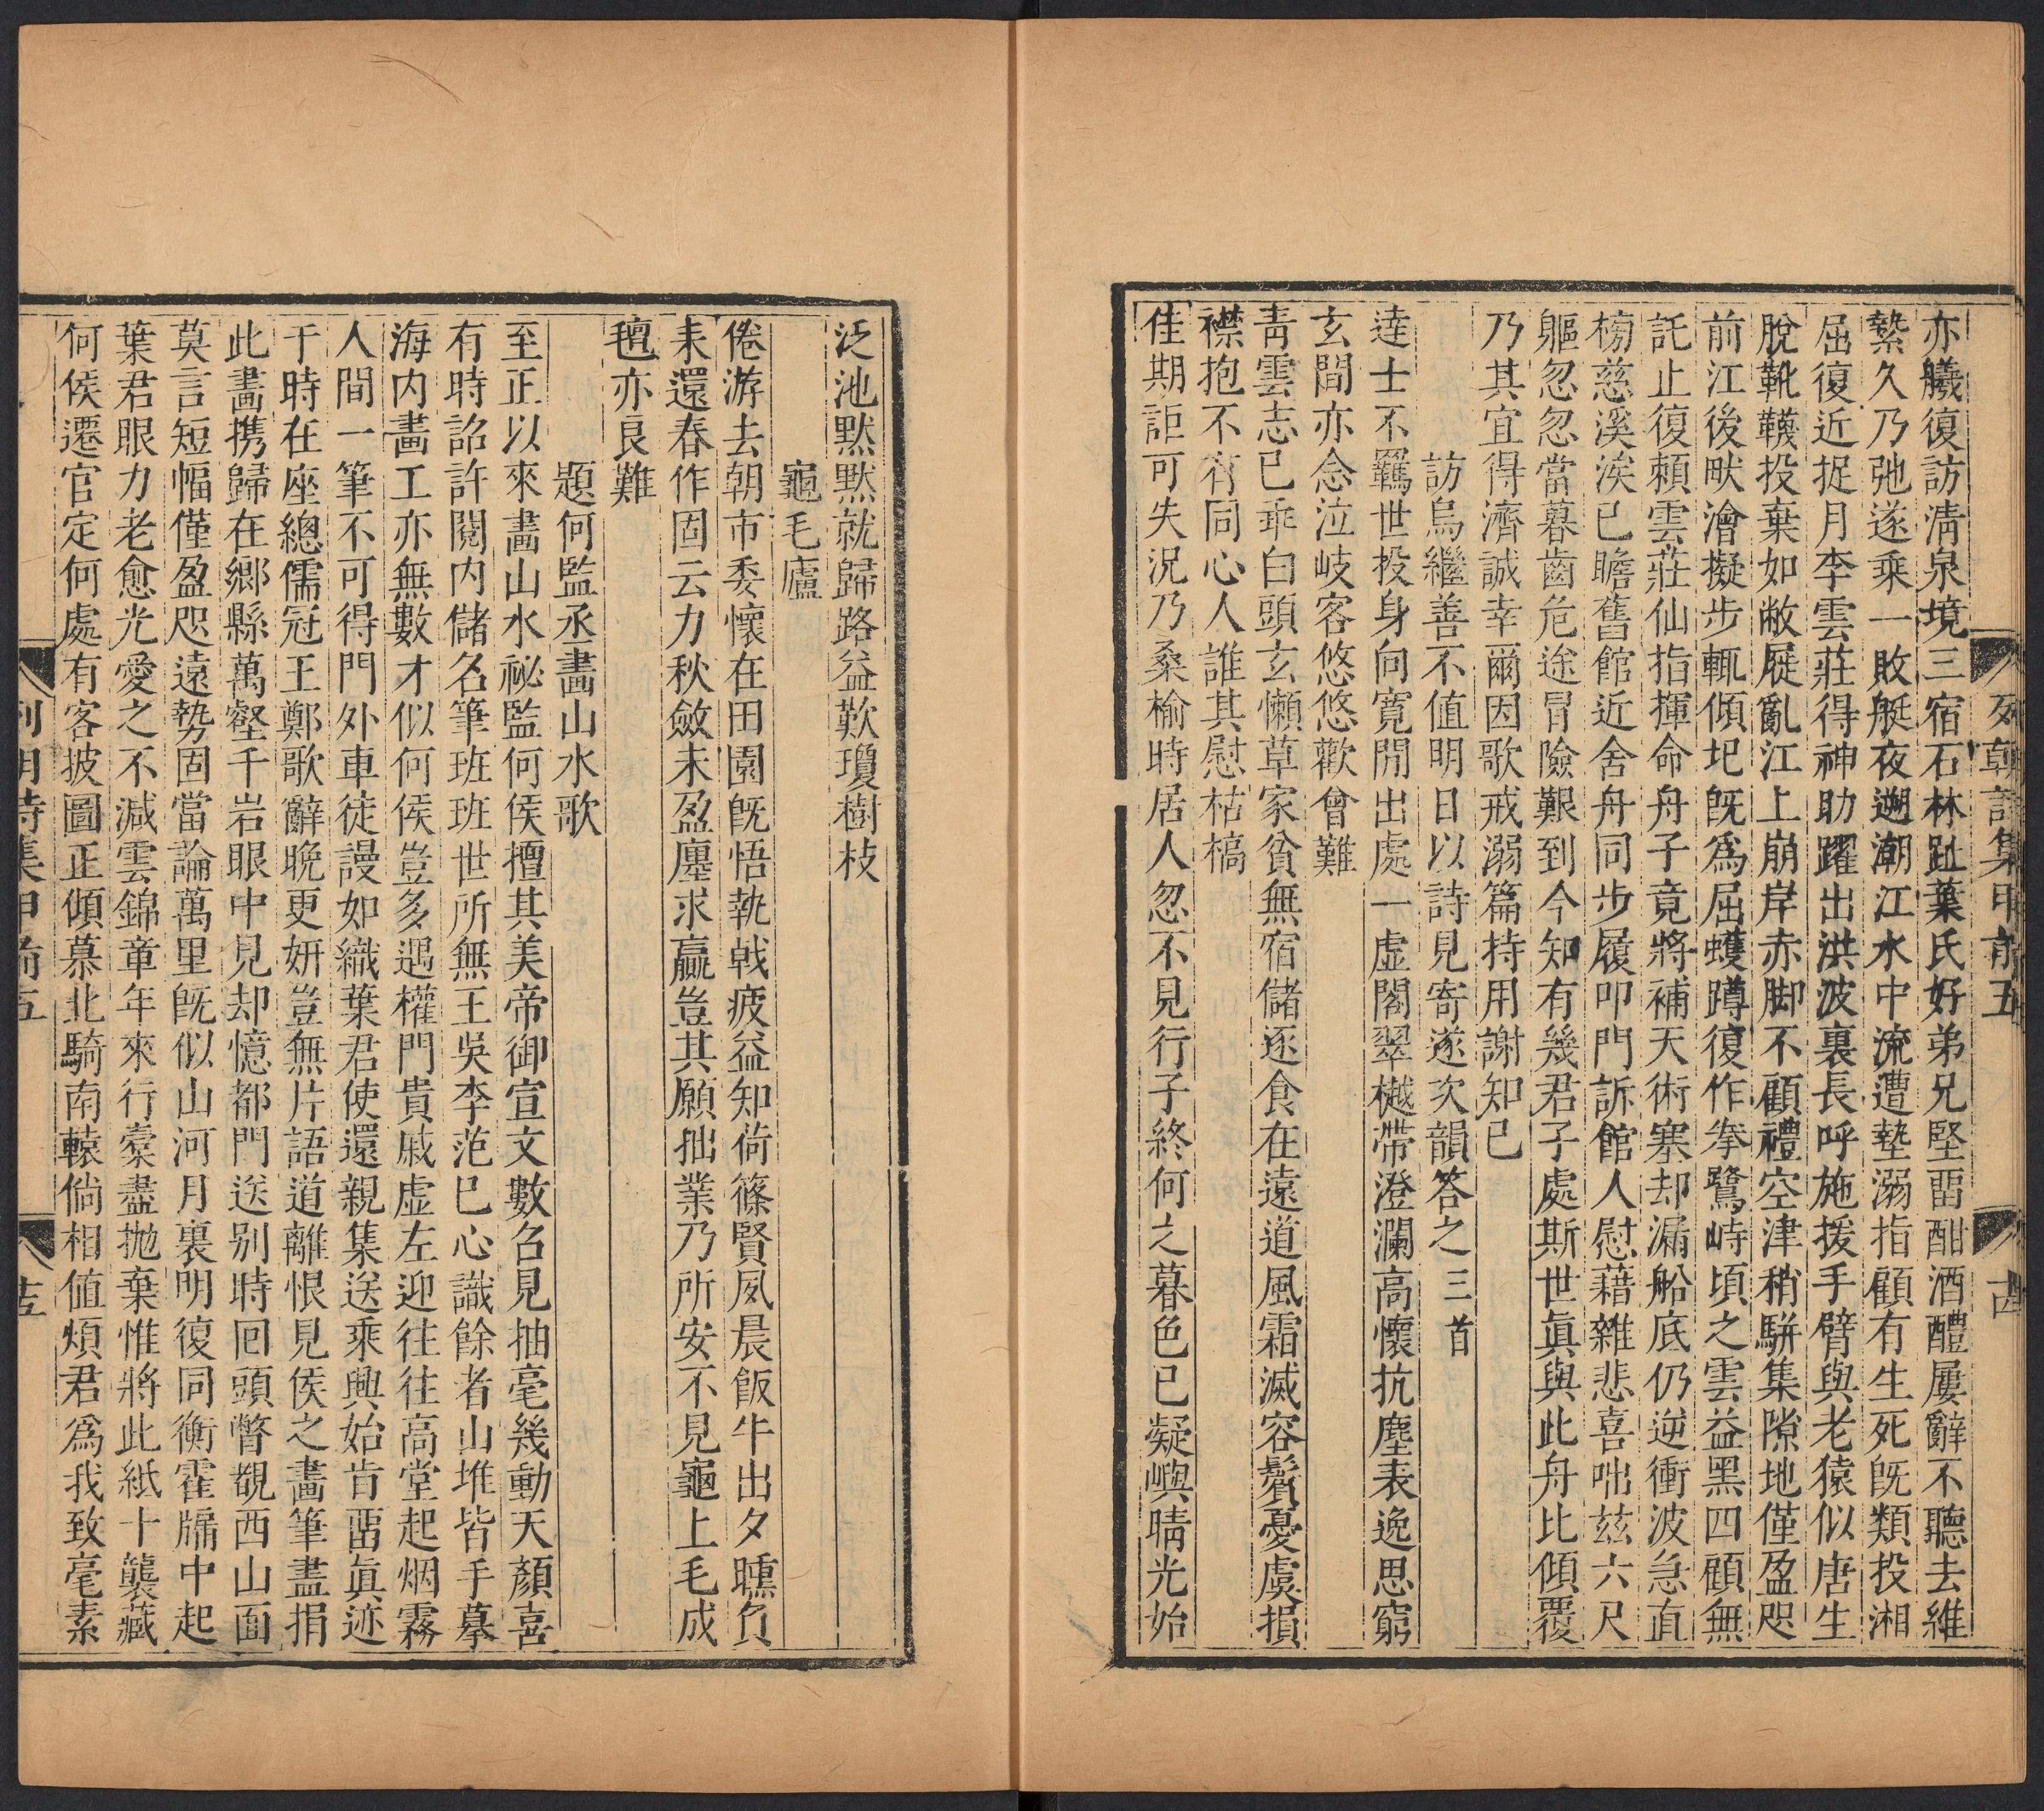 列朝詩集甲前五
十四
亦艤復訪淸泉境三宿石林趾葉氏好弟兄堅畱酣酒醴屢辭不聽去維
縶久乃弛遂乘一敗艇夜遡潮江水中流遭墊溺指顧有生死旣類投湘
屈復近捉月李雲莊得神助躍出洪波裏長呼施援手臂與老猿似唐生
脫靴韈投棄如敝屣亂江上崩岸赤脚不顧禮空津稍駢集隙地僅盈咫
前江後畎澮擬步輒傾圮旣爲屈蠖蹲復作拳鷺峙頃之雲益黑四顧無
託止復頼雲莊仙指揮命舟子竟將補天術塞却漏船底仍逆衝波急直
榜慈溪涘已瞻舊館近舍舟同步履叩門訴館人慰藉雜悲喜咄玆六尺
軀忽忽當暮齒危途冒險艱到今知有幾君子處斯世眞與此舟比傾覆
乃其宜得濟誠幸爾因歌戒溺篇持用謝知已
訪烏繼善不值明日以詩見寄遂次韻答之三首
逹士不羈世投身向寛閒出處一虚閣翠樾帶澄瀾高懷抗塵表逸思窮
玄間亦念泣岐客悠悠歡會難
靑雲志已乖白頭玄懶草家貧無宿儲逐食在遠道風霜滅容鬢憂虞損
襟抱不有同心人誰其慰枯槁
佳期詎可失況乃桑榆時居人忽不見行子終何之暮色已凝嶼晴光始
泛池默默就歸路益歎瓊樹枝
龜毛廬
倦游去朝市委懷在田園旣悟執戟疲益知荷篠賢夙晨飯牛出夕曛負
耒還春作固云力秋斂未盈廛求贏豈其願拙業乃所安不見龜上毛成
氊亦良難
題何監丞畫山水歌
至正以來畫山水祕監何侯擅其美帝御宣文數召見抽毫幾動天顏喜
有時詔許閱内儲名筆班班世所無王吳李范已心識餘者山堆皆手摹
海内畵工亦無數才似何侯豈多遇權門貴戚虚左迎往往高堂起烟霧
人間一筆不可得門外車徒謾如織葉君使還親集送乘興始肯畱眞迹
于時在座總儒冠王鄭歌辭晩更妍豈無片語道離恨見侯之畫筆盡捐
此畵携歸在鄉縣萬壑千岩眼中見却憶都門送别時回頭瞥覩西山面
莫言短幅僅盈咫遠勢固當論萬里旣似山河月裏明復同衡霍牖中起
葉君眼力老愈光愛之不減雲錦章年來行槖盡抛棄惟將此紙十襲藏
何侯遷官定何處有客披圖正傾慕北騎南轅倘相値煩君爲我致毫素
列朝詩集甲前五
十五